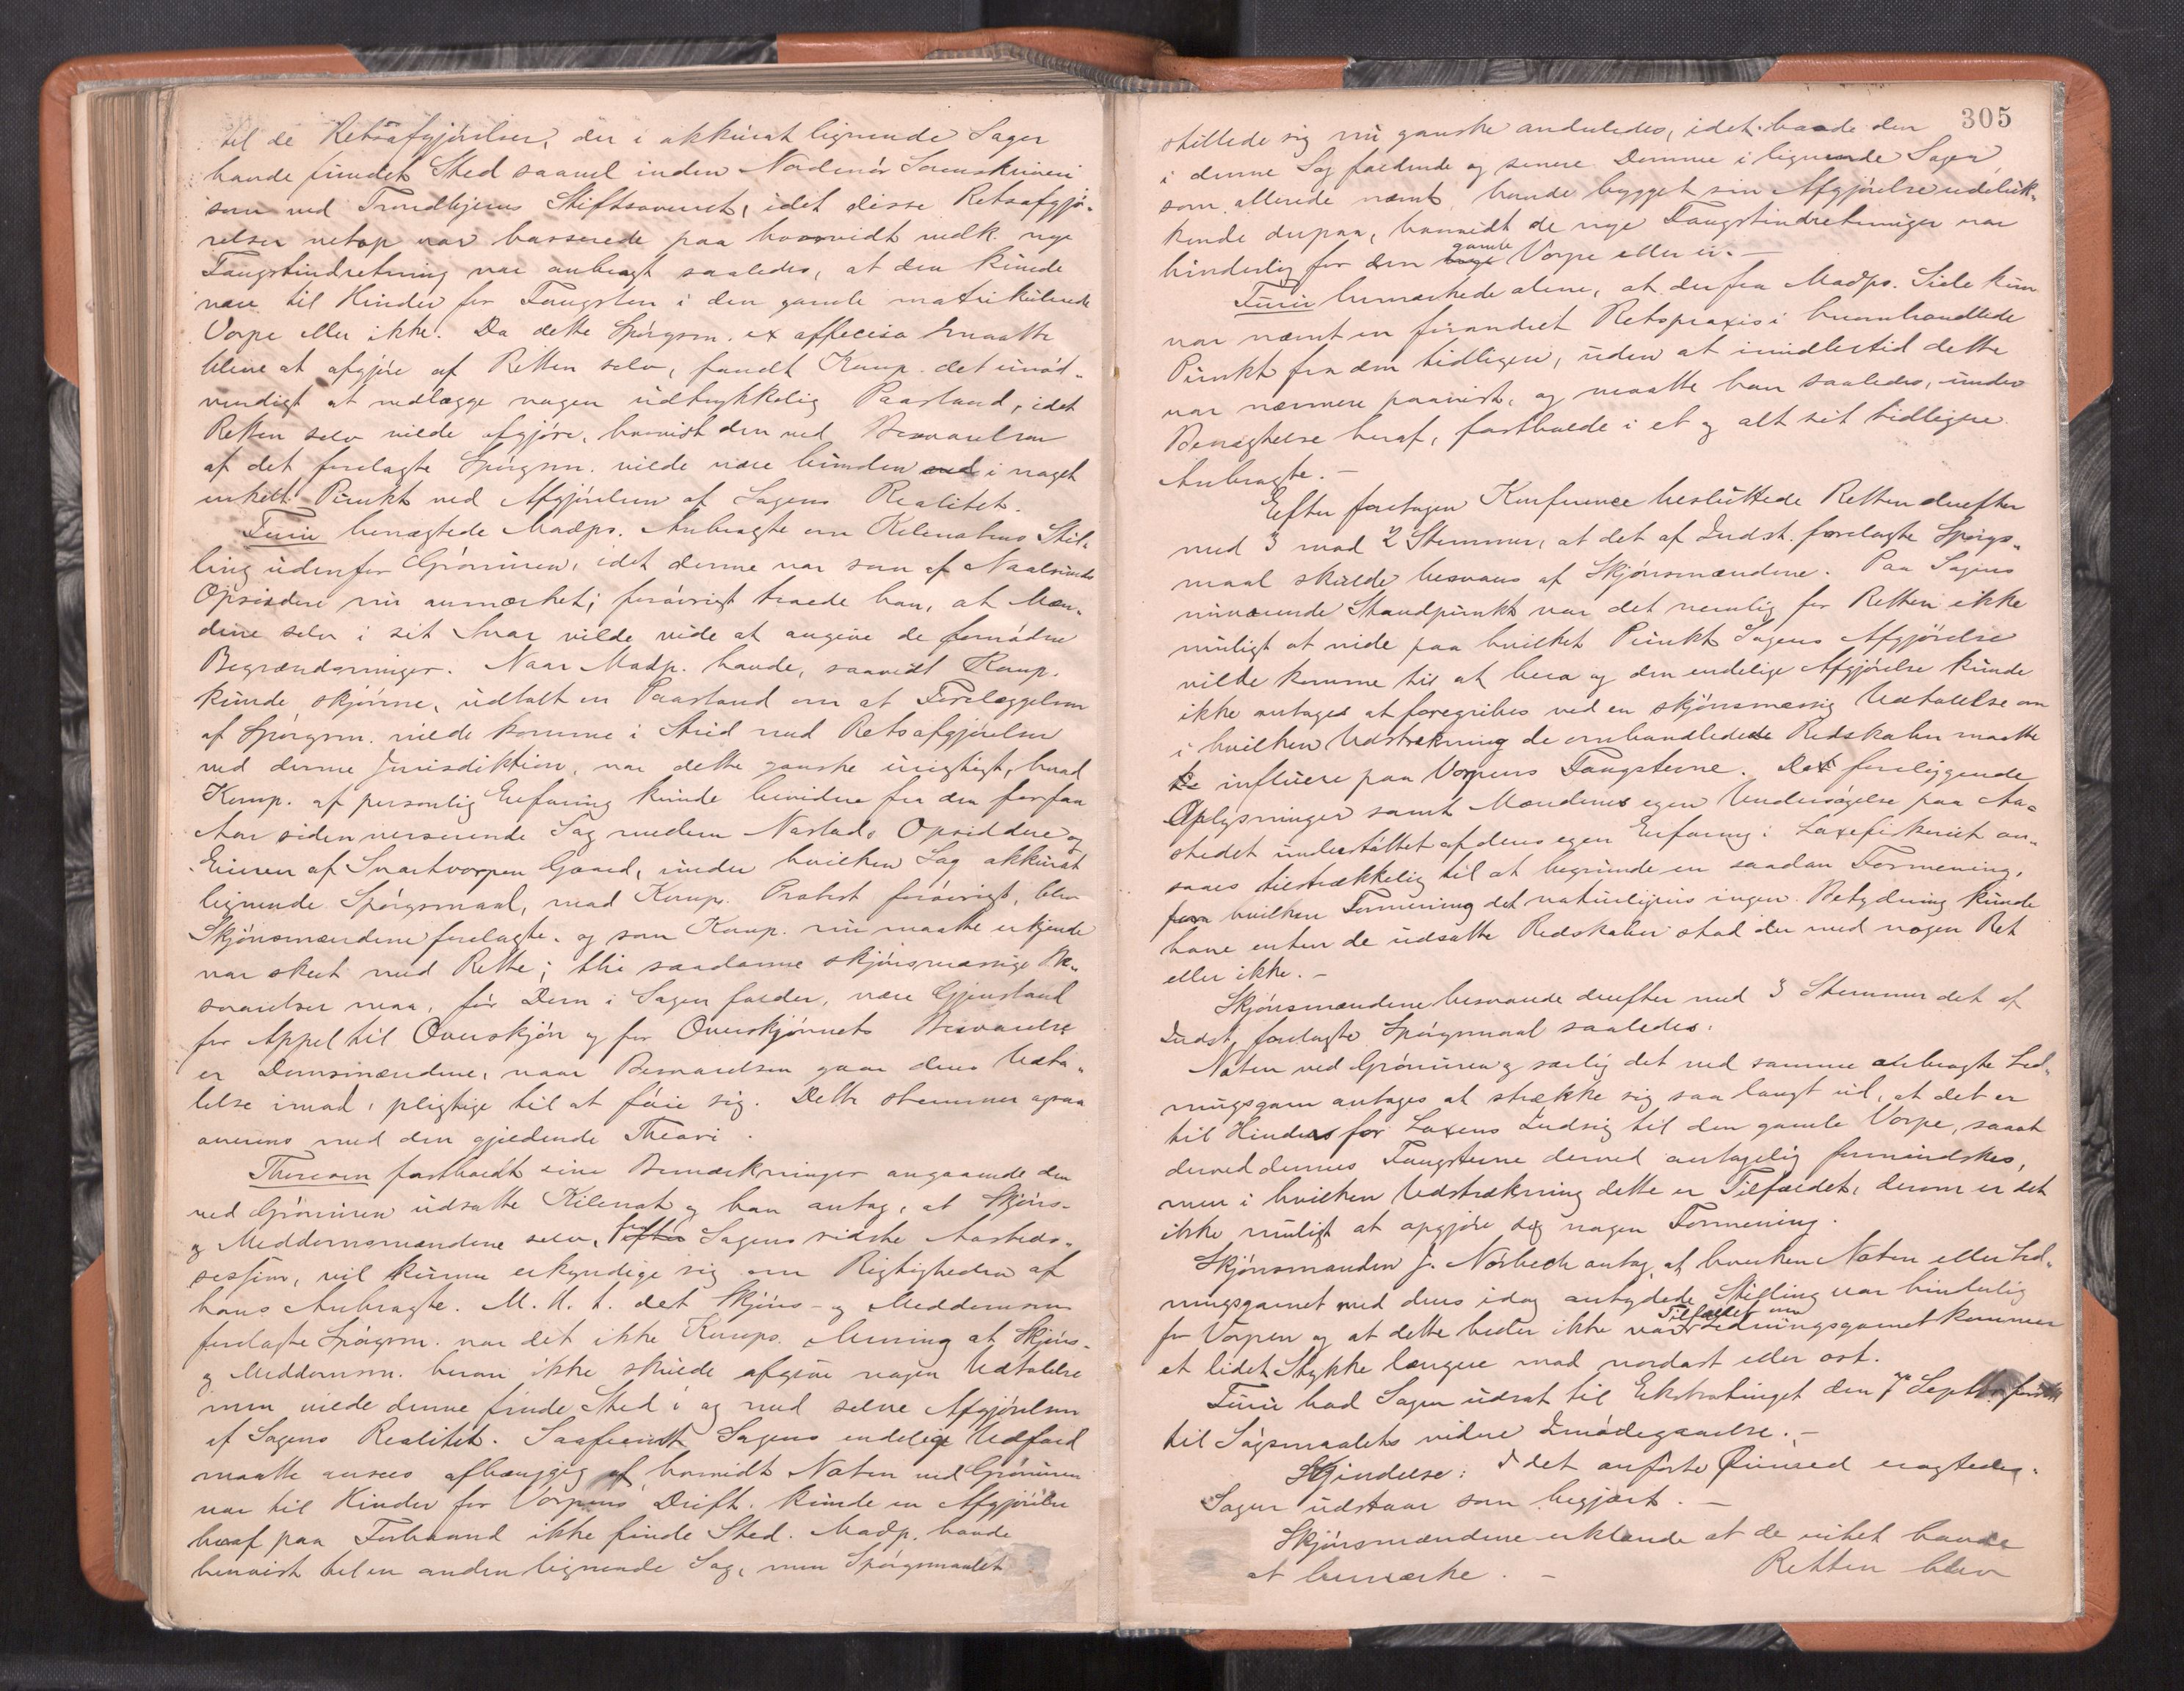 til de Retsafgjörelser, der i akkurat lignende Sager
havde fundet Sted saavel inden Nordmör Sorenskriveri
som ved Trondhjems Stiftsoverret, idet disse Retsafgjö-
relser netop var basserede paa hvorvidt vedk. nye
Fangstindretning var anbragt saaledes, at den kunde
være til Hinder for Fangsten i den gamle matrikulerede
Vorpe eller ikke. Da dette Spörgsm. ex officio maatte
blive at afgjöre af Retten selv, fandt Komp. det unöd-
vendigt at nedlægge nogen udtrykkelig Paastand, idet
Retten selv vilde afgjöre, hvorvidt den ved Besvarelsen
af det forelagte Spörgsm. vilde være bunden ved i noget
enkelt Punkt ved Afgjörelsen af Sagens Realitet.
Furu benægtede Madps. Anbragte om Kilenotens Stil-
ling udenfor Gröninen, idet denne var som af Naalsunds
Opsiddere nu anmærket; foröivrigt troede han, at Mæn-
dene selv i sit Svar vilde vide at angive de fornödne
Begrændsninger. Naar Madp. havde, saavidt Komp.
kunde skjönne, udtalt en Paastand om at Forelæggelsen
af Spörgsm. vilde komme i Strid med Retsafgjörelser
ved denne Jurisdiktion, var dette ganske urigtigt, hvad
Komp. af personlig Erfaring kunde bevidne fra den for faa
Aar siden verserende Sag mellem Nastads Opsiddere og
Eieren af Svartvorpen Gaard, under hvilken Sag akkurat
lignende Spörgsmaal, mod Komps. Protest foröivrigt, blev
Skjönsmændene forelagte, og som Komp. nu maatte erkjende
var skeet med Rette; thi saadanne skjönsmæssige Be-
svarelser maa, för Dom i Sagen falder, være Gjenstand
for Appel til Overskjön og for Overskjönnets Besvarelse
er Domsmændene, naar Besvarelsen gaar deres Udta-
lelse imod, pligtige til at föie sig. Dette stemmer ogsaa
overens med den gjældende Theori.
Thoresen fastholdt sine Bemærkninger angaaende den
ved Gröninen udsatte Kilenot og han antog, at Skjöns-
og Meddomsmændene selv, efter Sagens sidste Aasteds-
session, vil kunne erkyndige sig om Rigtigheden af
hans Anbragte. M. H. t. det Skjöns- og Meddomsm.
forelagte Spörgsm. var det ikke Komps. Mening at Skjöns-
og Meddomsm. herom ikke skulde afgive nogen Udtalelse
men vilde denne finde Sted i og med selve Afgjörelsen
af Sagens Realitet. Saafremt Sagens endelige Udfald
maatte ansees afhængig af hvorvidt Noten ved Gröninen
var til Hinder for Vorpens Drift, kunde en Afgjörelse
heraf paa Forhaand ikke finde Sted. Madp. havde
henvist til en anden lignende Sag, men Spörgsmaalet
305
stillede sig nu ganske anderledes, idet baade den
i denne Sag faldende og senere Domme i lignende Sager,
som allerede nævnt, havde bygget sin Afgjörelse udeluk-
kende derpaa, hvorvidt de nye Fangstindretninger var
hinderlig for den gamle Vorpe eller ei. –
Furu bemærkede alene, at der fra Madps. Side kun
var nævnt en forandret Retspraxis i heromhandlede
Punkt fra den tidligere, uden at imidlertid dette
var nærmere paavist, og maatte han saaledes, under
Benægtelse heraf, fastholde i et og alt sit tidligere
Anbragte. –
Efter foretagen Konference besluttede Retten derefter
med 3 mod 2 Stemmer, at det af Indst. forelagte Spörgs-
maal skulde besvares af Skjönsmændene. Paa Sagens
nuværende Standpunkt var det nemlig for Retten ikke
muligt at vide paa hvilket Punkt Sagens Afgjörelse
vilde komme til at bero og den endelige Afgjörelse kunde
ikke antages at foregribes ved en skjönsmæssig Udtalelse om
i hvilken Udstrækning de omhandlede Redskaber maatte
influere paa Vorpens Fangstevne. De foreliggende
Oplysninger samt Mændenes egen Undersögelse paa Aa-
stedet understöttet af deres egen Erfaring i Laxefiskeriet an-
saaes tilstrækkelig til at begrunde en saadan Formening,
for hvilken Formening det naturligvis ingen Betydning kunde
have enten de udsatte Redskaber stod der med nogen Ret
eller ikke. –
Skjönsmændene besvarede derefter med 3 Stemmer det af
Indst. forelagte Spörgsmaal saaledes:
Noten ved Gröninen og særlig det ved samme anbragte Led-
ningsgarn antages at strække sig saa langt ud, at det er
til Hinder for Laxens Indsig til den gamle Vorpe, samt
derved dennes Fangstevne derved antagelig formindskes,
men i hvilken Udstrækning dette er Tilfældet, derom er det
ikke muligt at opgjöre sig nogen Formening.
Skjönsmanden J. Nörbech antog, at hverken Noten eller Led-
ningsgarnet med dens idag antydede Stilling var hinderlig
for Vorpen og at dette heller ikke var Tilfældet om Ledningsgarnet kommer
et lidet Stykke længere mod nordost eller ost.
Furu bad Sagen udsat til Ekstrathinget den 7de Septbr. förstk
til Sögsmaalets videre Imödegaaelse. –
Kjendelse: I det anförte Öiemed eragtedes
Sagen udstaar som begjært. –
Skjönsmændene erklærede at de intet havde
at bemærke. – Retten blev